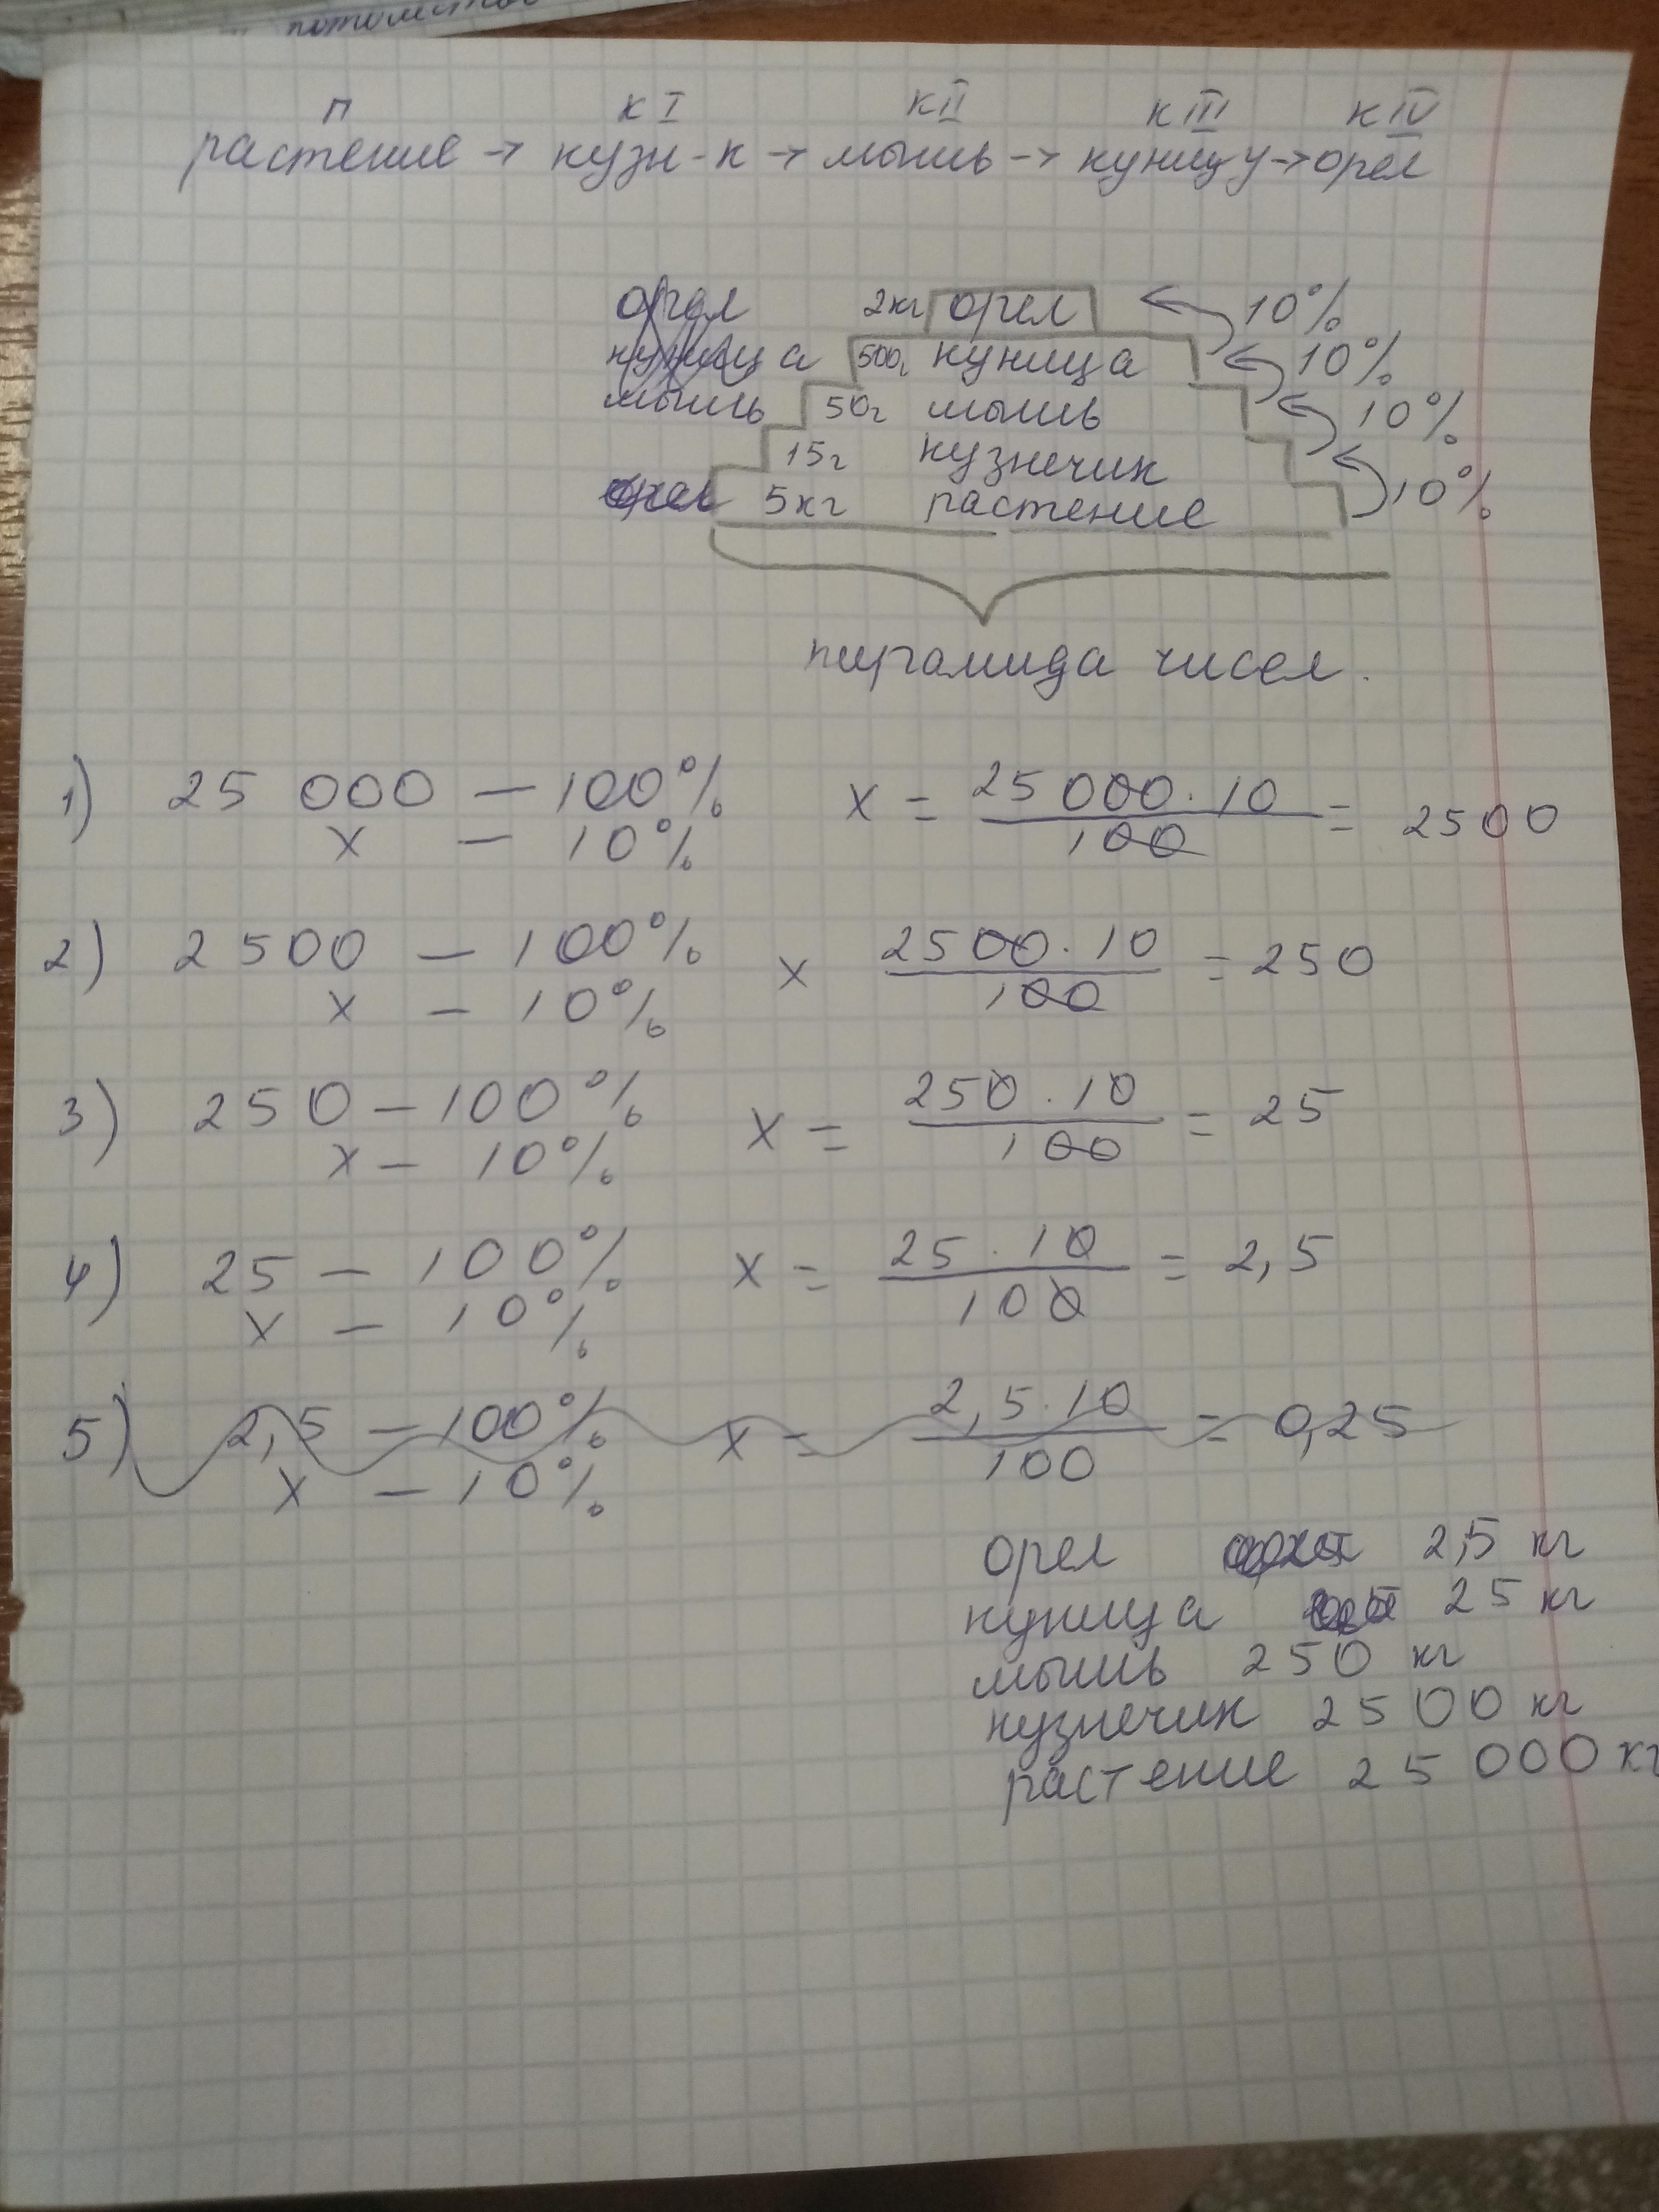 потомство
п кI кII кIII кIV
растение → кузн-к → мышь → куницу → орел
орел 2кг орел 10%
куница 500г куница 10%
мышь 50г мышь 10%
15г кузнечик
5кг растение 10%
пирамида чисел.
1) 25 000 – 100% x = 25 000 · 10 / 100 = 2500
x – 10%
2) 2500 – 100% x 2500 · 10 / 100 = 250
x – 10%
3) 250 – 100% x = 250 · 10 / 100 = 25
x – 10%
4) 25 – 100% x = 25 · 10 / 100 = 2,5
x – 10%
5) 2,5 – 100% x = 2,5 · 10 / 100 = 0,25
x – 10%
орел 2,5 кг
куница 25 кг
мышь 250 кг
кузнечик 2500 кг
растение 25 000 кг